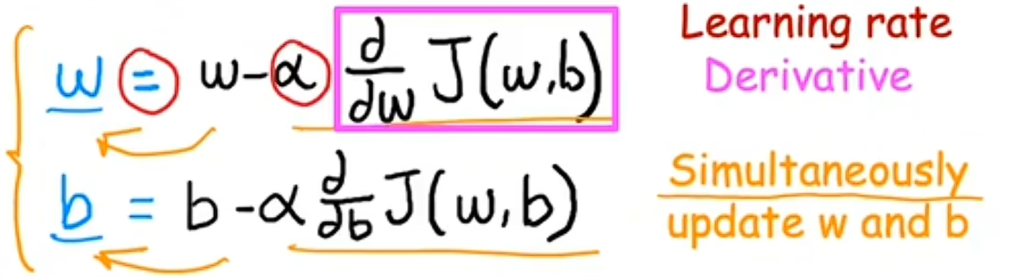 w = w - α d/dw J(w,b)
b = b - α d/db J(w,b)
Learning rate
Derivative
Simultaneously
update w and b